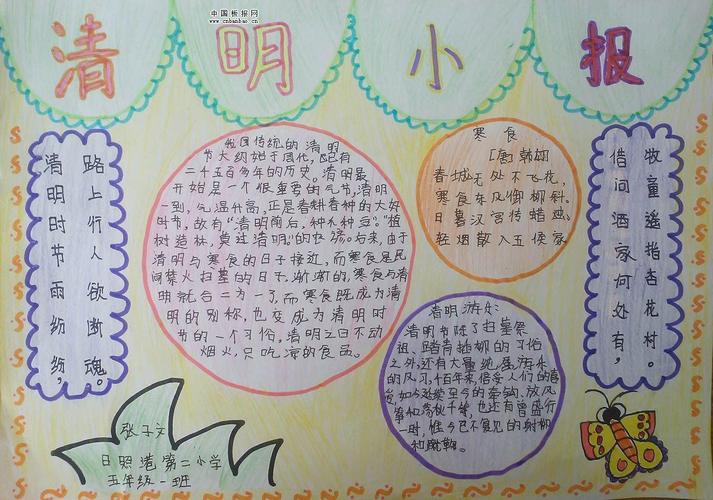 中国板报网
www.cnbanbao.cn
清明小报
清明时节雨纷纷，
路上行人欲断魂。
我国传统的清明
节大约始于周代，已有
二千五百多年的历史。清明最
开始是一个很重要的气节，清明
一到，气温升高，正是春耕春种的大好
时节，故有“清明前后，种瓜种豆”。“植
树造林，莫过清明。”的农谚。后来，由于
清明与寒食的日子接近，而寒食是民
间禁火扫墓的日子，渐渐的，寒食与清
明就合二为一了，而寒食既成为清
明的别称，也变成为清明时
节的一个习俗，清明之日不动
烟火，只吃凉的食品。
寒食
[唐]韩翃
春城无处不飞花，
寒食东风御柳斜。
日暮汉宫传蜡烛，
轻烟散入五侯家
借问酒家何处有，
牧童遥指杏花村。
清明游乐：
清明节除了扫墓祭
祖、踏青插柳的习俗
之外，还有大量他游乐
的风习，千百年来，倍受人们的喜
爱，如今延续至今的牵钩、放风
筝和荡秋千等，也还有曾盛行
一时，惟今已不复见的射柳
和蹴鞠。
张子文
日照港第二小学
五年级一班